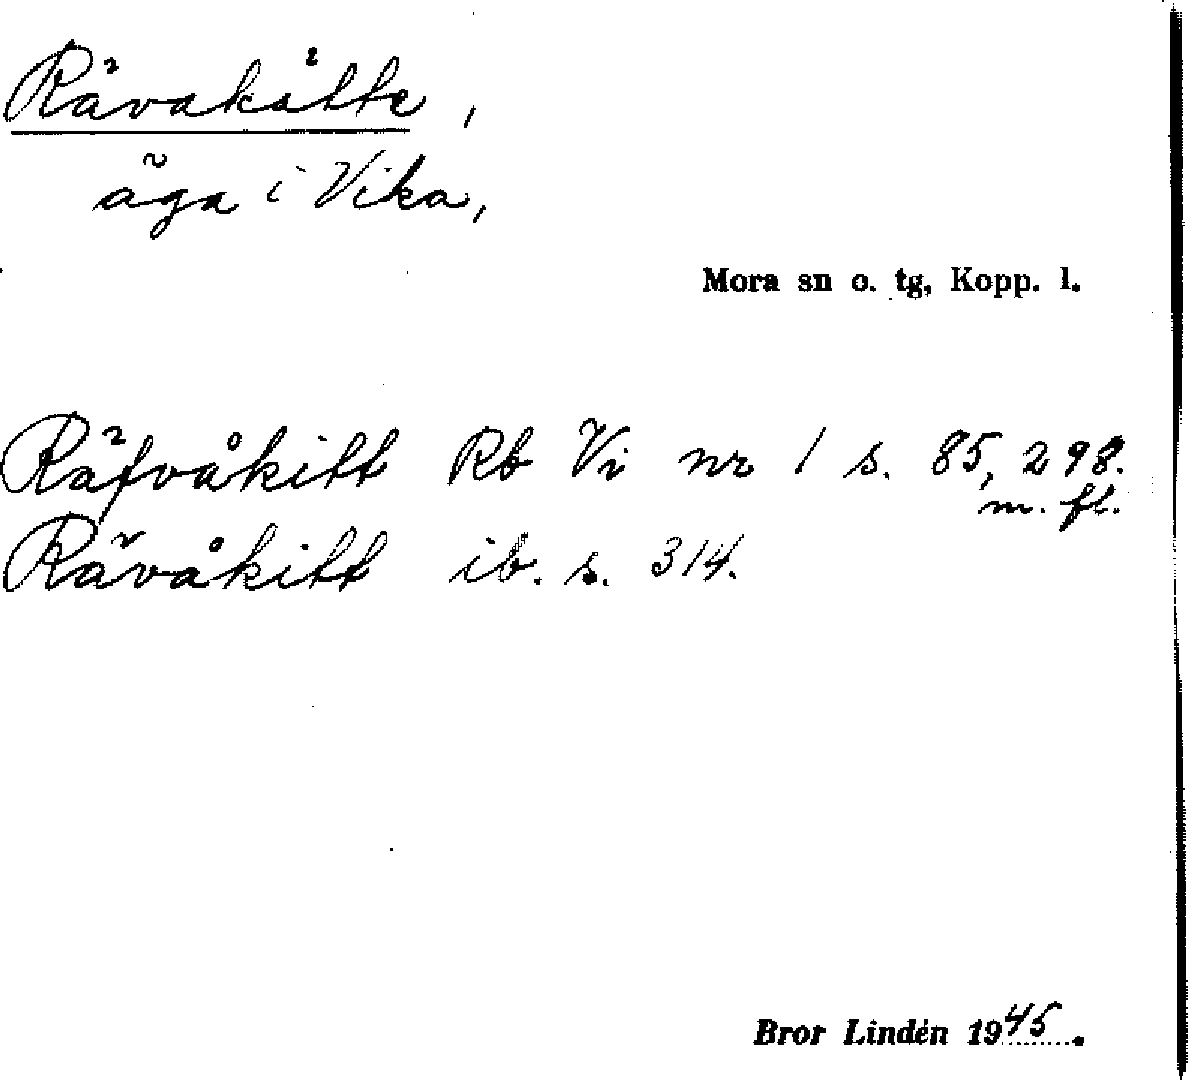 Rävakätte,
äga i Vika,
Mora sn o. tg, Kopp. l.
Räfvåkitt Rb Vi nr 1 s. 85, 298.
m. fl.
Rävåkitt ib. s. 314.
Bror Lindén 1945.